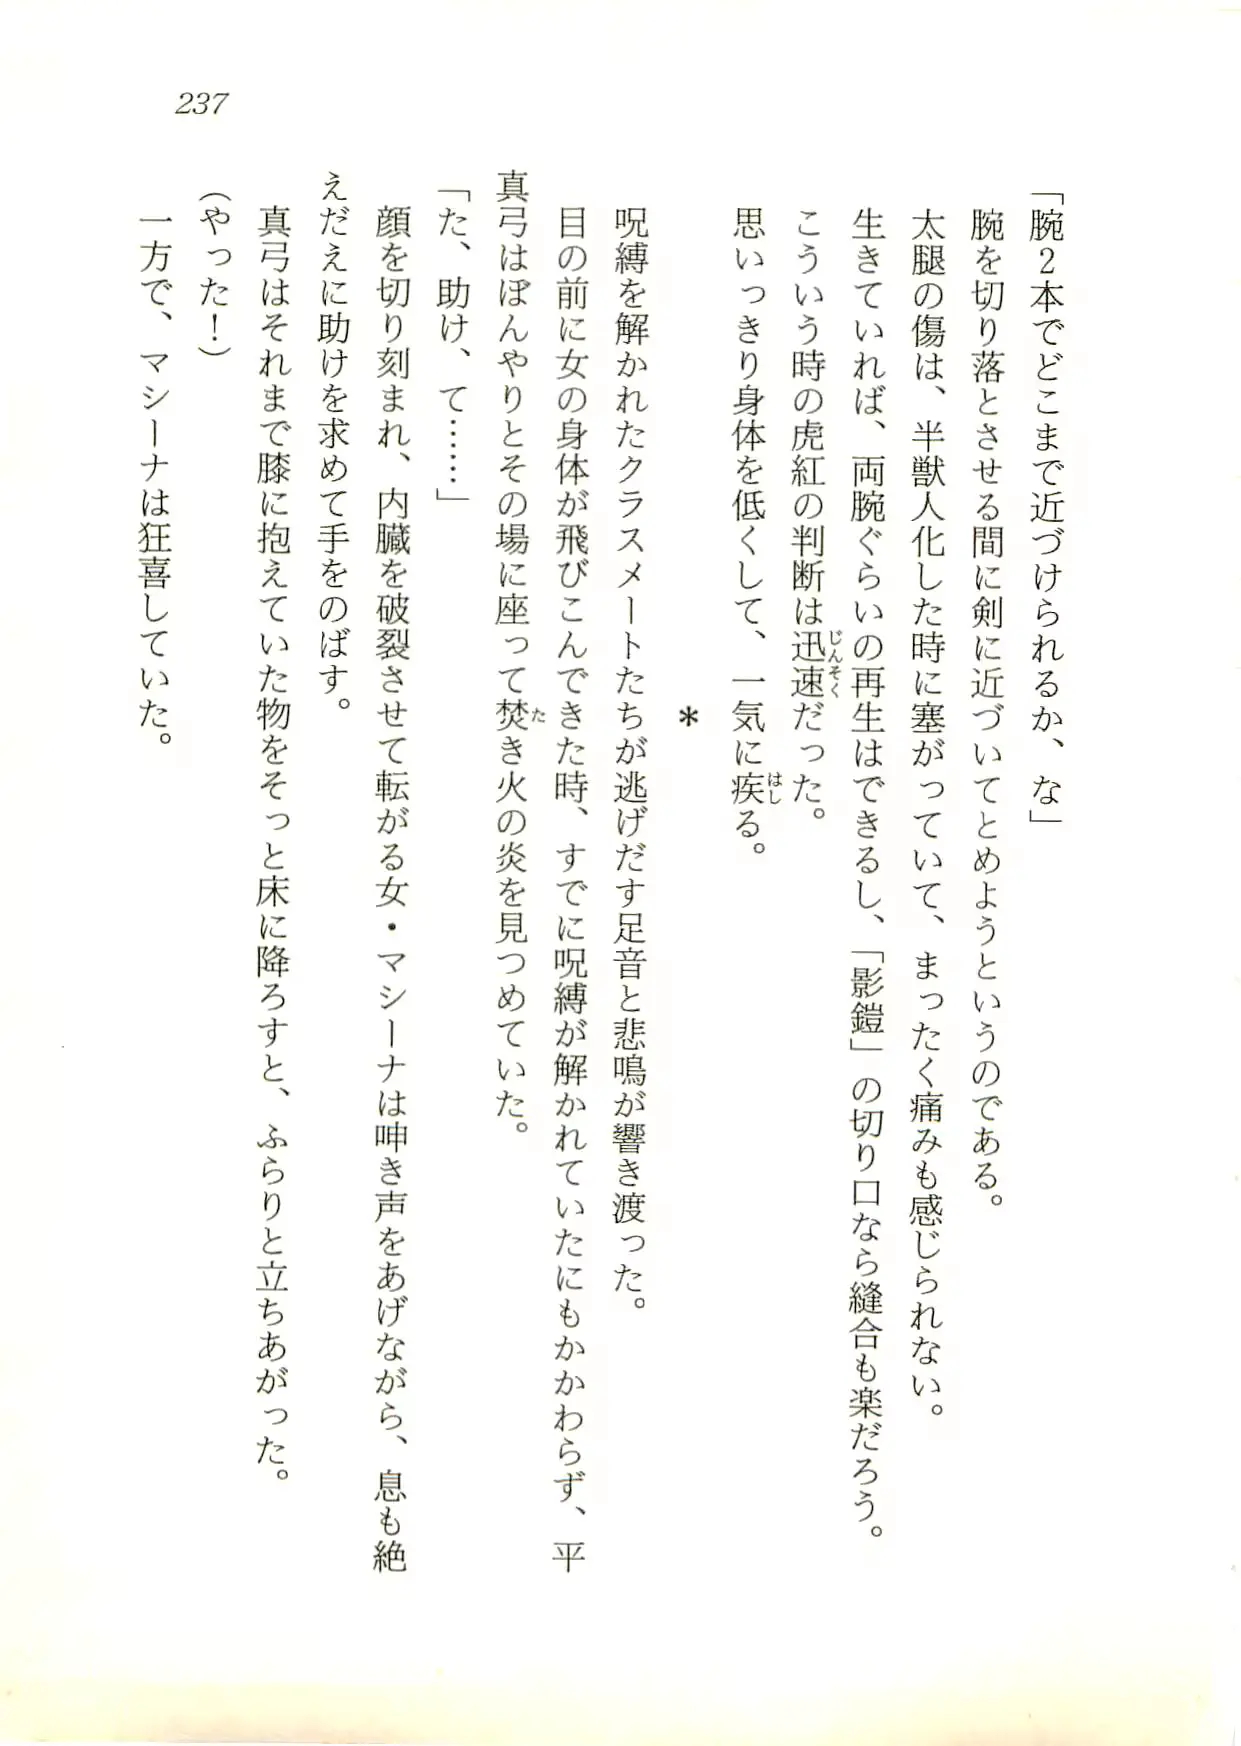 237
「腕2本でどこまで近づけられるか、な」
腕を切り落とさせる間に剣に近づいてとめようというのである。
太腿の傷は、半獣人化した時に塞がっていて、まったく痛みも感じられない。
生きていれば、両腕ぐらいの再生はできるし、「影鎧」の切り口なら縫合も楽だろう。
こういう時の虎紅の判断は迅速じんそくだった。
思いっきり身体を低くして、一気に疾はしる。
*
呪縛を解かれたクラスメートたちが逃げだす足音と悲鳴が響き渡った。
目の前に女の身体が飛びこんできた時、すでに呪縛が解かれていたにもかかわらず、平
真弓はぼんやりとその場に座って焚たき火の炎を見つめていた。
「た、助け、て……」
顔を切り刻まれ、内臓を破裂させて転がる女・マシーナは呻き声をあげながら、息も絶
えだえに助けを求めて手をのばす。
真弓はそれまで膝に抱えていた物をそっと床に降ろすと、ふらりと立ちあがった。
(やった!)
一方で、マシーナは狂喜していた。